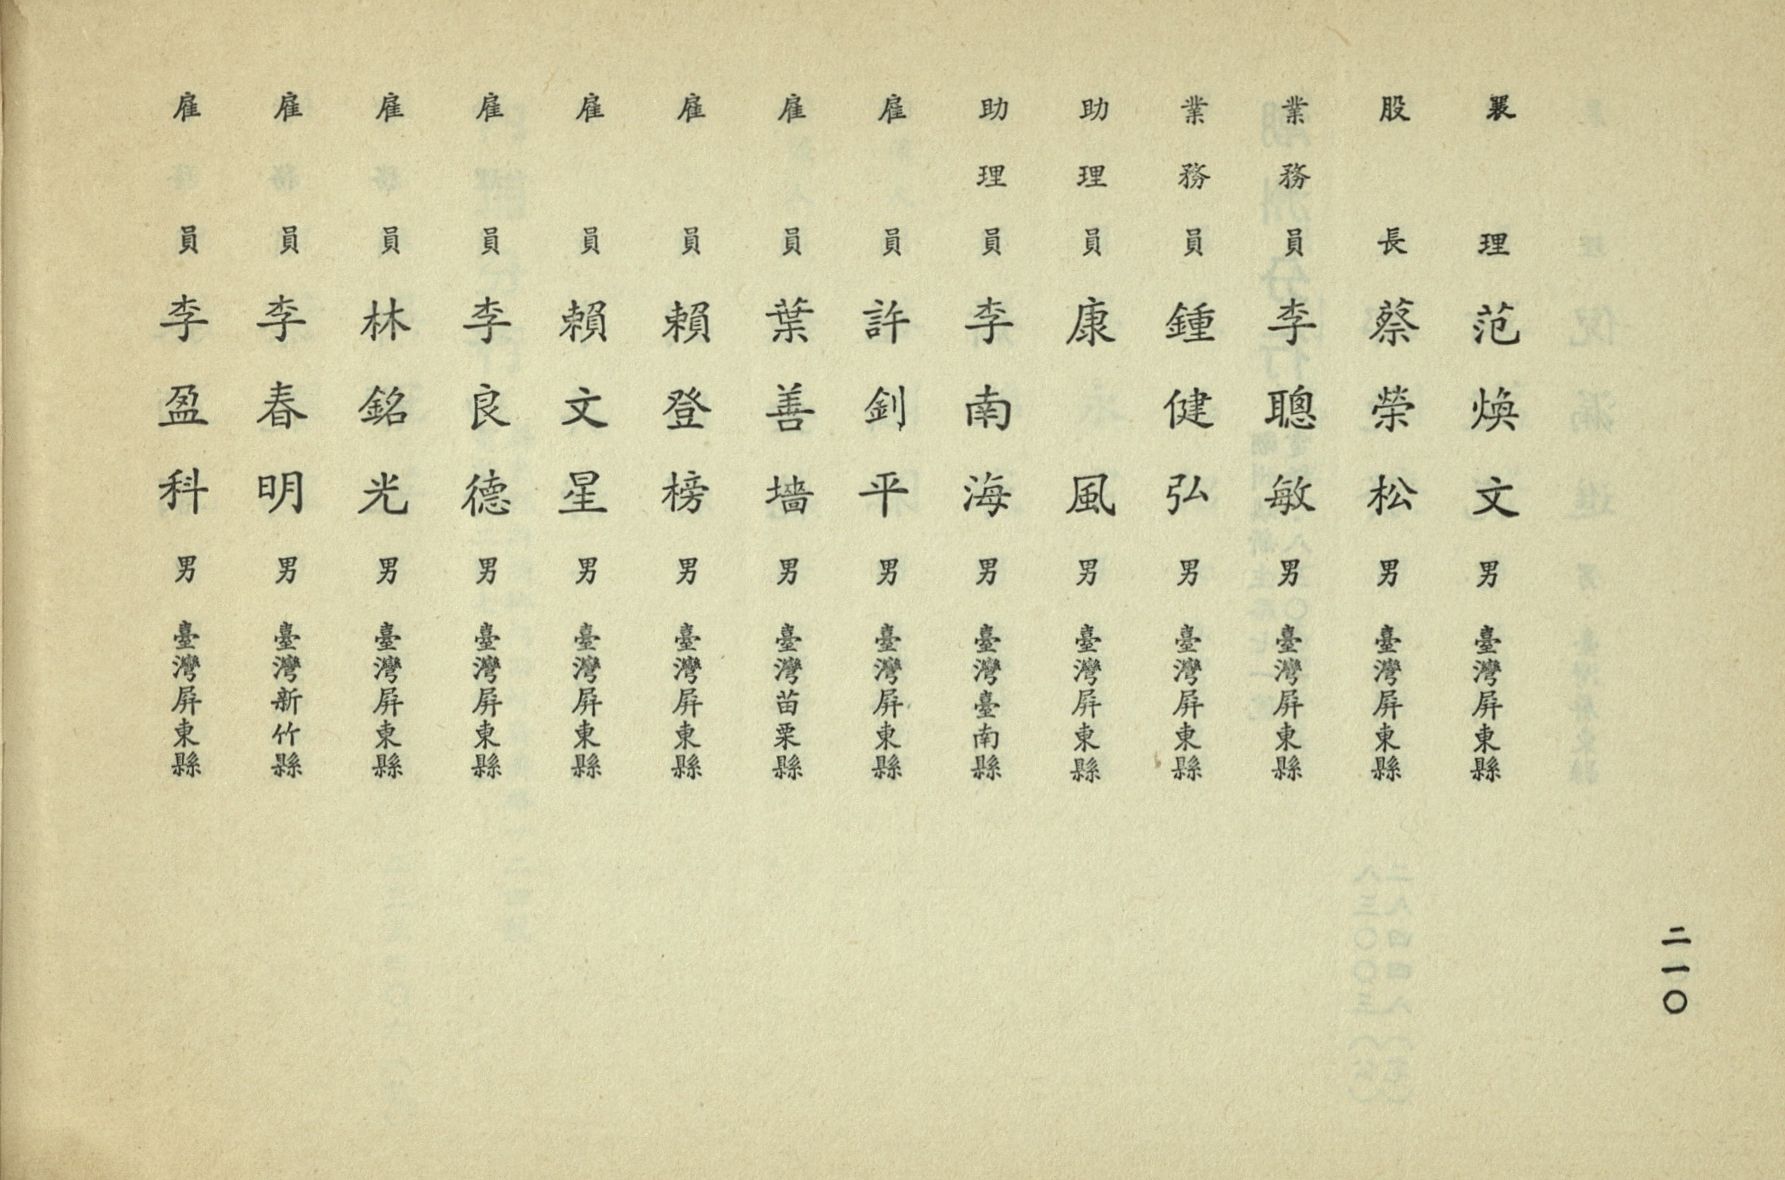 二一〇
襄理 范煥文 男 臺灣屏東縣
股長 蔡榮松 男 臺灣屏東縣
業務員 李聰敏 男 臺灣屏東縣
業務員 鍾健弘 男 臺灣屏東縣
助理員 康風 男 臺灣屏東縣
助理員 李南海 男 臺灣臺南縣
雇員 許釗平 男 臺灣屏東縣
雇員 葉善墻 男 臺灣苗栗縣
雇員 賴登榜 男 臺灣屏東縣
雇員 賴文星 男 臺灣屏東縣
雇員 李良德 男 臺灣屏東縣
雇員 林銘光 男 臺灣屏東縣
雇員 李春明 男 臺灣新竹縣
雇員 李盈科 男 臺灣屏東縣